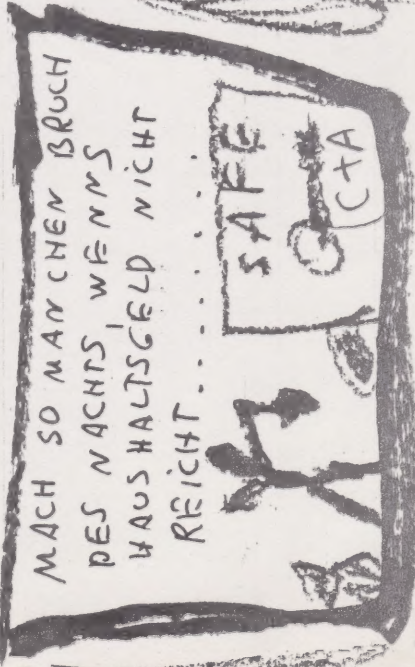 MACH SO MANCHEN BRUCH
DES NACHTS, WENNS
HAUSHALTSGELD NICHT
REICHT..........
SAFE
C+A